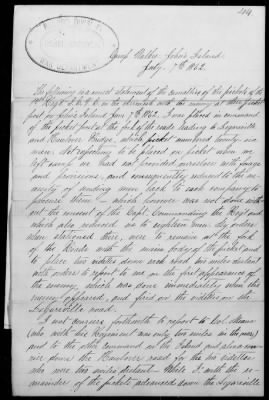 Camp Walkes, John's Island.
July 7th 1862.
The following is a correct statement of the casualties of the pickets of the
Regt. S.C.V. in the skirmish with the enemy at their picket
post on John's Island June 7th 1862. I was placed in command
of the picket post at the fork of the roads leading to Legareville
and Haulover Bridge, which picket numbered twenty six
men. Not expecting to be placed on picket when we
left camp we had not provided ourselves with forage
and provisions, and consequently reduced to the ne-
cessity of sending men back to each company to
procure them — which however was not done with-
out the consent of the Capt. Commanding the Regt. and
which also reduced us to eighteen men. My orders
when stationed there, were to remain at the fork
of the roads with the main body of the picket and
to place two videttes down each road two miles distant
with orders to report to me on the first appearance of
the enemy, which was done immediately when the
enemy appeared, and fired on the videttes on the
Legareville road.
I sent couriers forthwith to report to Col. Means
(who with his Regiment was only two miles in the rear)
and to the other command on the Island and also a cou-
rier down the Haulover road for the two videttes
who were two miles distant — While I with the re-
mainder of the pickets advanced down the Legareville